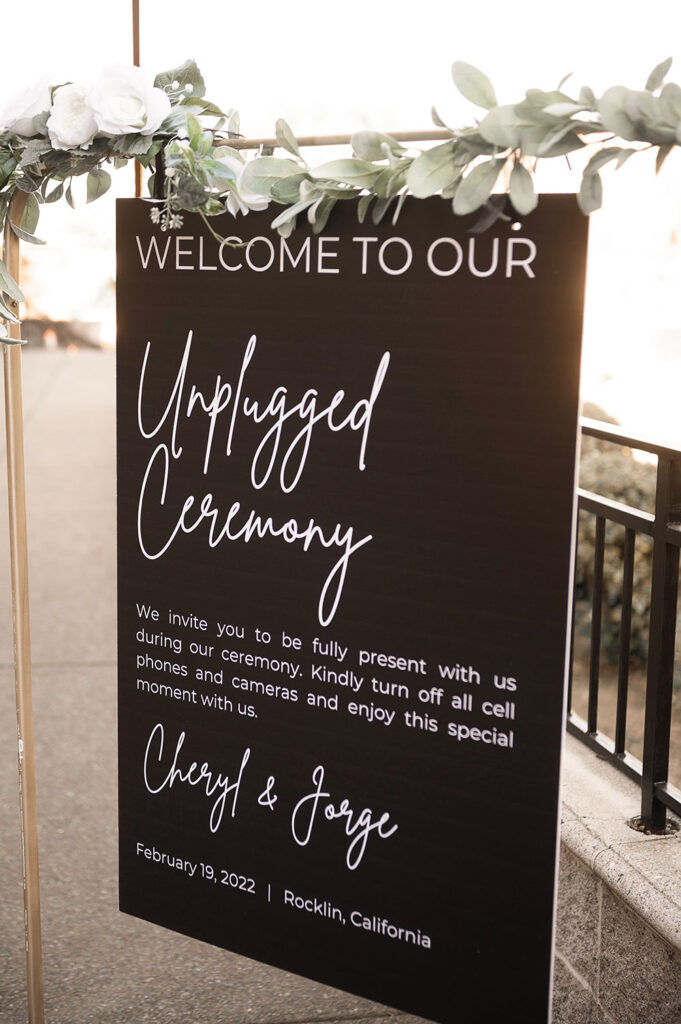 WELCOME TO OUR
Unplugged
Ceremony
We invite you to be fully present with us
during our ceremony. Kindly turn off all cell
phones and cameras and enjoy this special
moment with us.
Cheryl & Jorge
February 19, 2022 | Rocklin, California